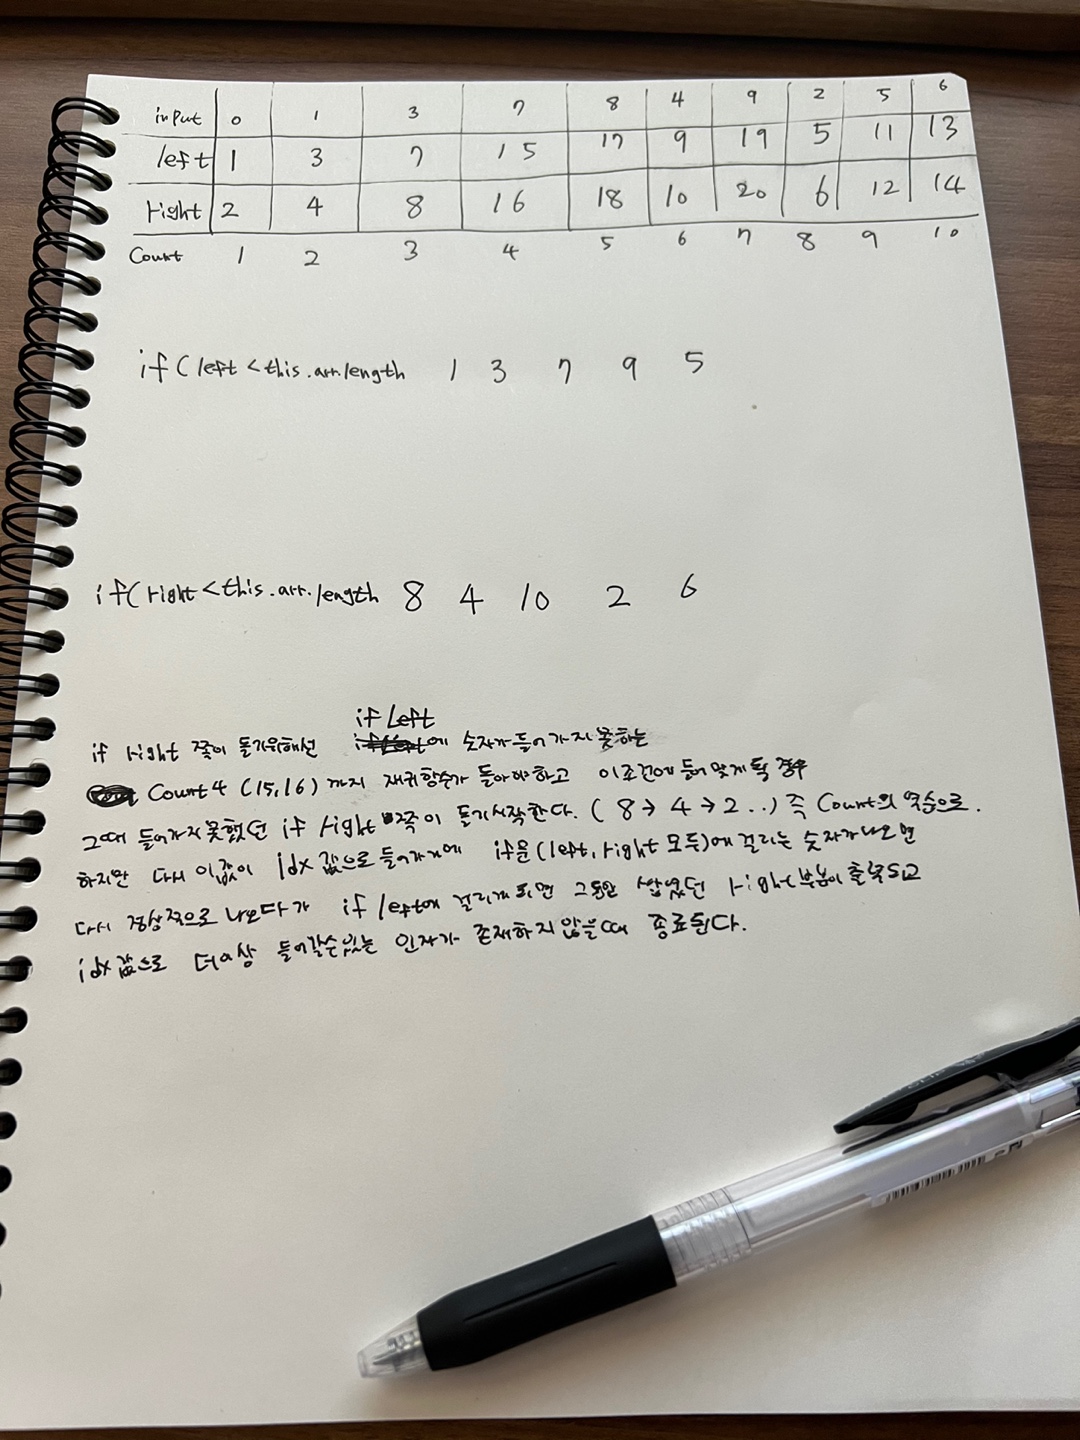 input 0 1 3 7 8 4 9 2 5 6
left 1 3 7 15 17 9 19 5 11 13
right 2 4 8 16 18 10 20 6 12 14
Count 1 2 3 4 5 6 7 8 9 10
if(left<this.arr.length 1 3 7 9 5
if(right<this.arr.length 8 4 10 2 6
if Left
if right 쪽이 돌기위해선 에 숫자가 들어가지 못하는
Count 4 (15,16) 까지 재귀함수가 돌아야하고 이조건에 들어맞게 될 경우
그때 들어가지 못했던 if right 쪽이 돌기시작한다. (8→4→2..) 즉 Count의 역순으로.
하지만 다시 이값이 idx 값으로 들어가기에 if문(left, right 모두)에 걸리는 숫자가 나오면
다시 정상적으로 나오다가 if left에 걸리게 되면 그동안 쌓였던 right부분이 출력되고
idx 값으로 더이상 들어갈수있는 인자가 존재하지 않을때 종료된다.